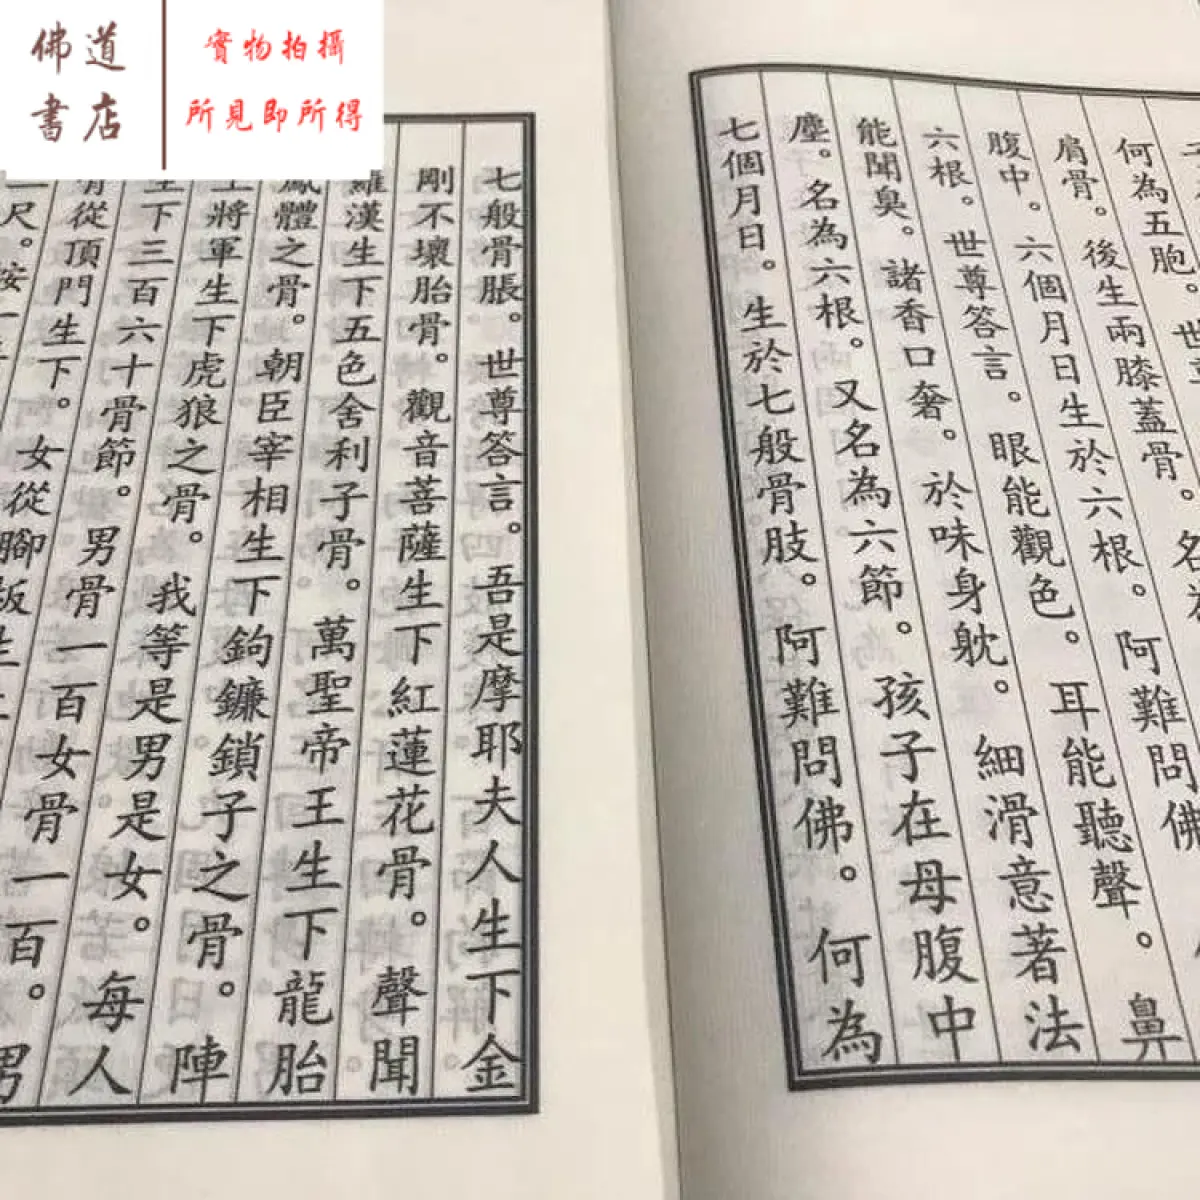 佛道書店
實物拍攝
所見即所得
何為五胞。世尊
肩骨。後生兩膝蓋骨。名為
腹中。六個月日生於六根。阿難問佛
六根。世尊答言。眼能觀色。耳能聽聲。鼻
能聞臭。諸香口奢。於味身躭。細滑意著法
塵。名為六根。又名為六節。孩子在母腹中
七個月日。生於七般骨肢。阿難問佛。何為
七般骨脹。世尊答言。吾是摩耶夫人生下金
剛不壞胎骨。觀音菩薩生下紅蓮花骨。聲聞
羅漢生下五色舍利子骨。萬聖帝王生下龍胎
鳳體之骨。朝臣宰相生下鉤鐮鎖子之骨。陣
上將軍生下虎狼之骨。我等是男是女。每人
生下三百六十骨節。男骨一百女骨一百。男
骨從頂門生下。女從腳板生
尺。按